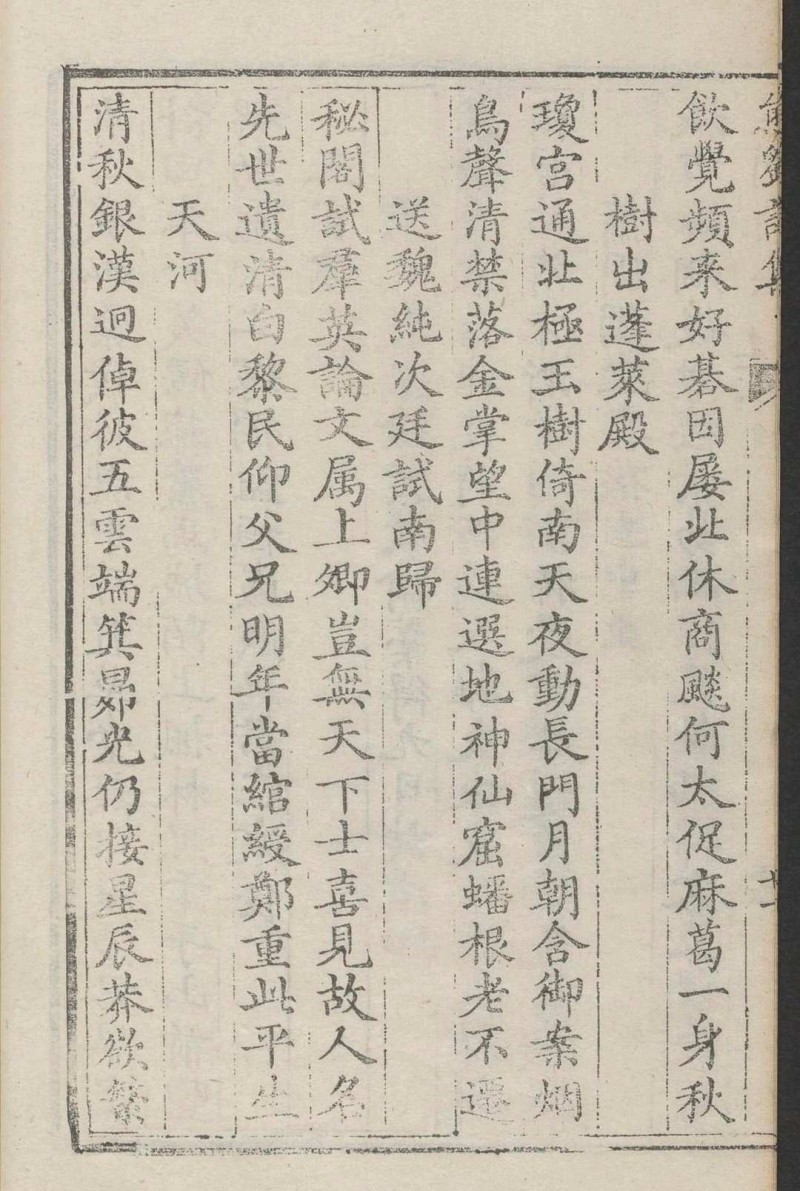 飲覺頻来好碁因屡北休商颷何太促麻葛一身秋
樹出蓬萊殿
瓊宫通北極玉樹倚南天夜動長門月朝含御案烟
鳥聲清禁落金掌望中連選地神仙窟蟠根老不遷
送魏純次廷試南歸
秘閣試羣英論文属上卿豈無天下士喜見故人名
先世遺清白黎民仰父兄明年當綰綬鄭重此平生
天河
清秋銀漢迥倬彼五雲端箕昴光仍接星辰莽欲繁